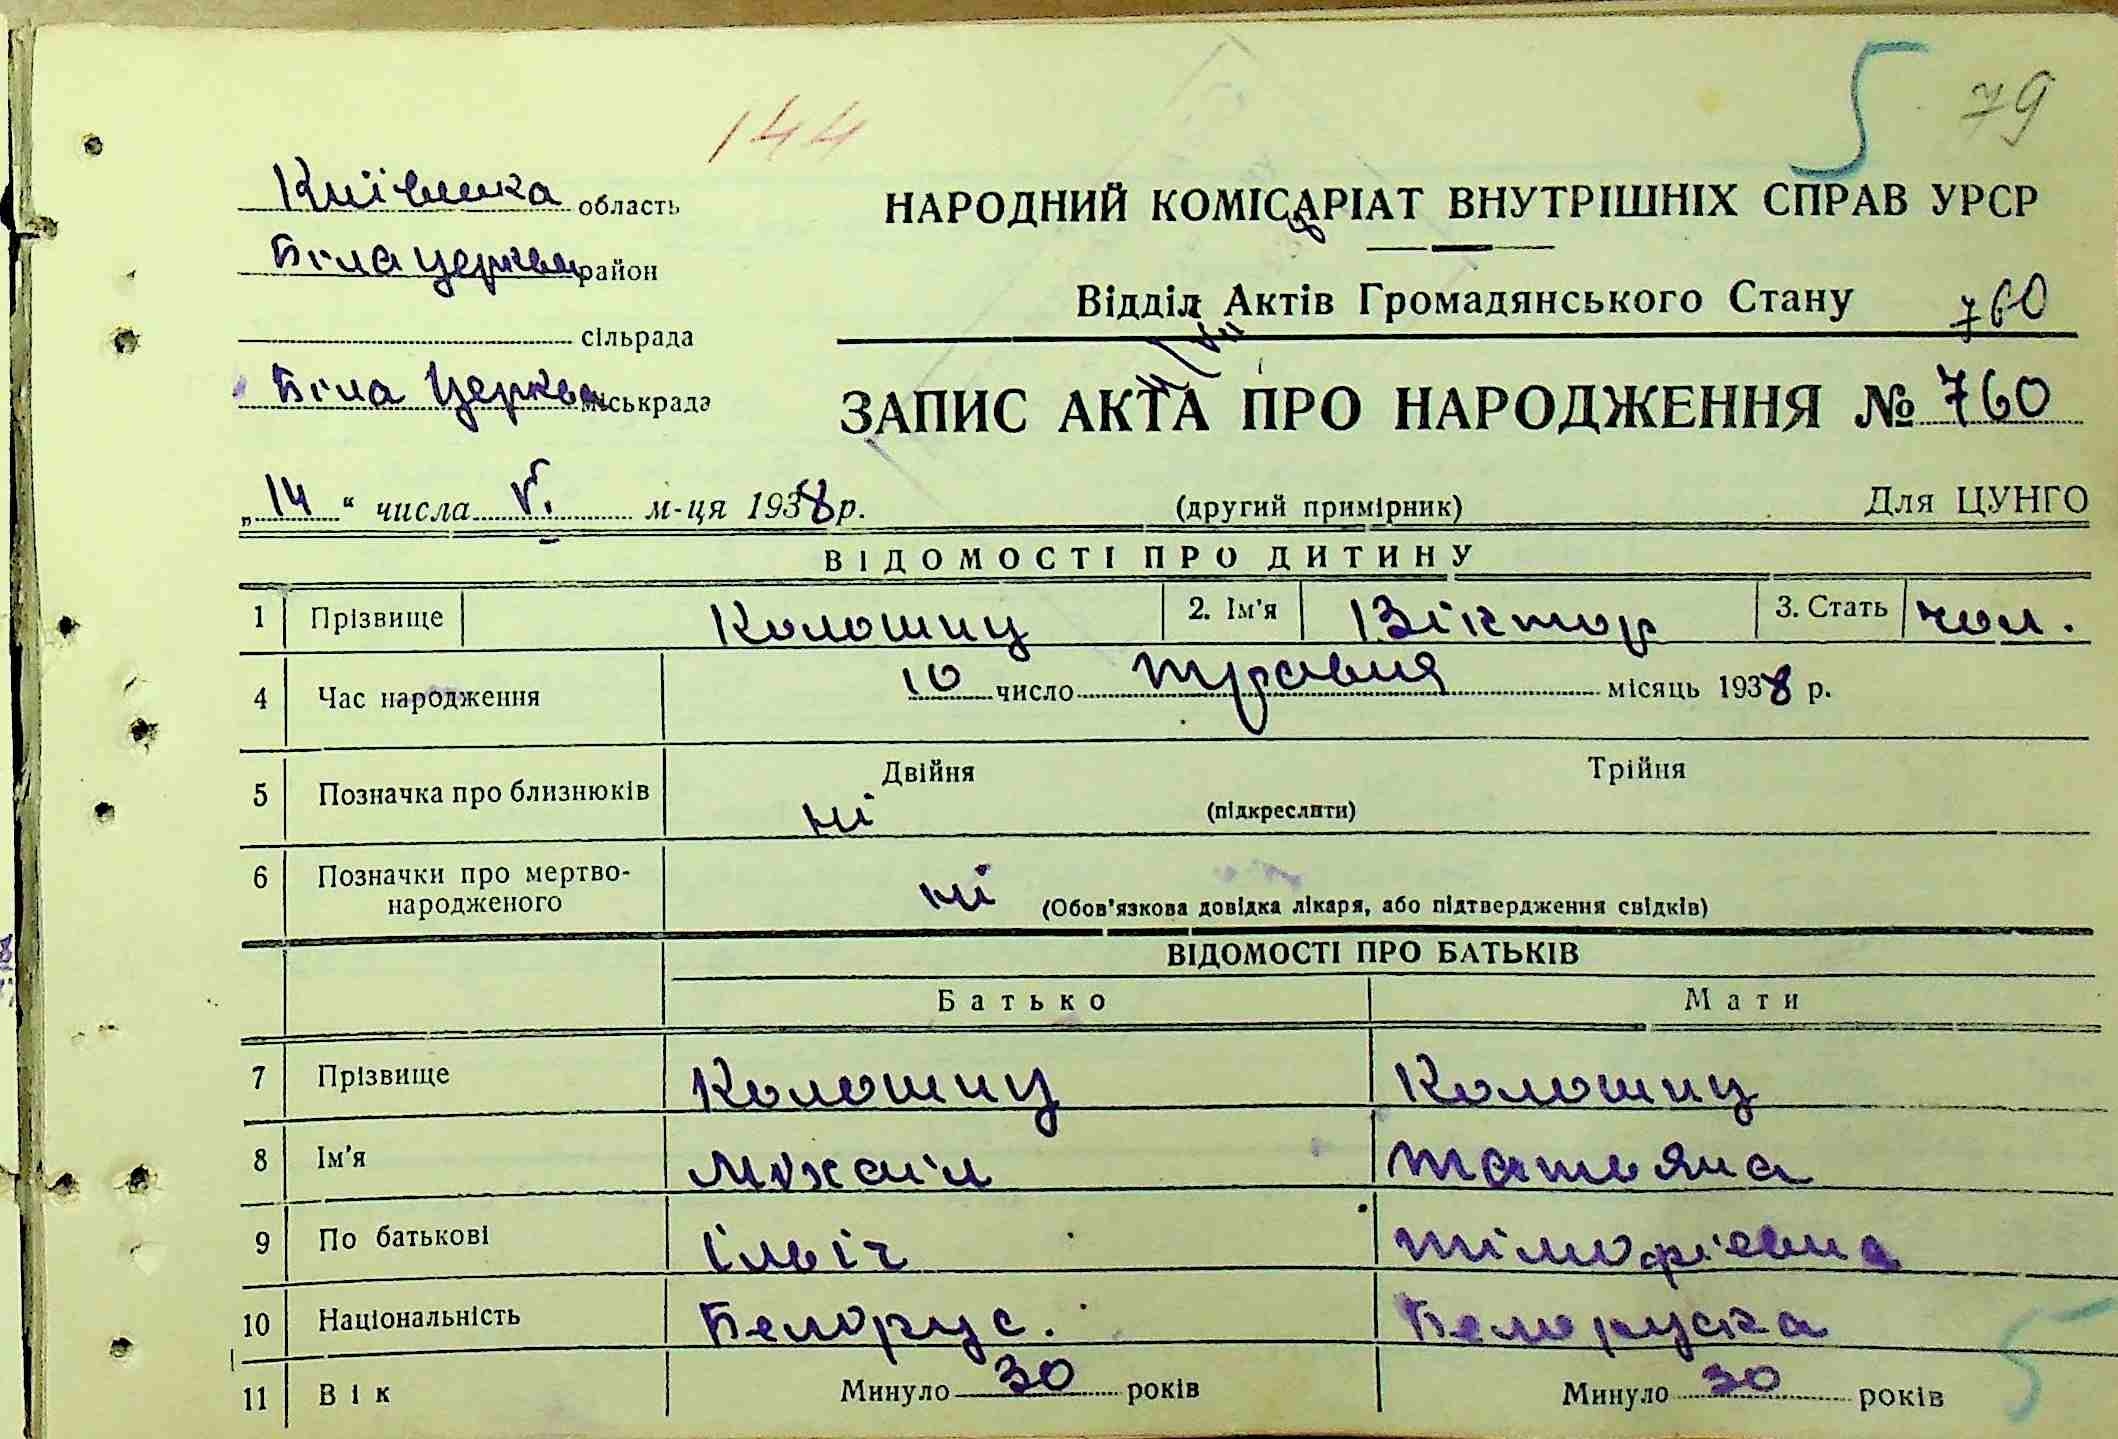 144
5 79
Київська область
Біла Церква район
сільрада
Біла Церква міськрада
НАРОДНИЙ КОМІСАРІАТ ВНУТРІШНІХ СПРАВ УРСР
Відділ Актів Громадянського Стану 760
ЗАПИС АКТА ПРО НАРОДЖЕННЯ № 760
„14“ числа V. м-ця 1938 р. (другий примірник) Для ЦУНГО
ВІДОМОСТІ ПРО ДИТИНУ
1 Прізвище Колошиц 2. Ім'я Віктор 3. Стать чол.
4 Час народження 10 число травня місяць 1938 р.
5 Позначка про близнюків Двійня Трійня
ні (підкреслити)
6 Позначки про мертво-
народженого ні (Обов'язкова довідка лікаря, або підтвердження свідків)
ВІДОМОСТІ ПРО БАТЬКІВ
Батько Мати
7 Прізвище Колошиц Колошиц
8 Ім'я Міхаіл Татьяна
9 По батькові Ільіч Тімофієвна
10 Національність Белорус. Белоруска
5
11 Вік Минуло 30 років Минуло 30 років